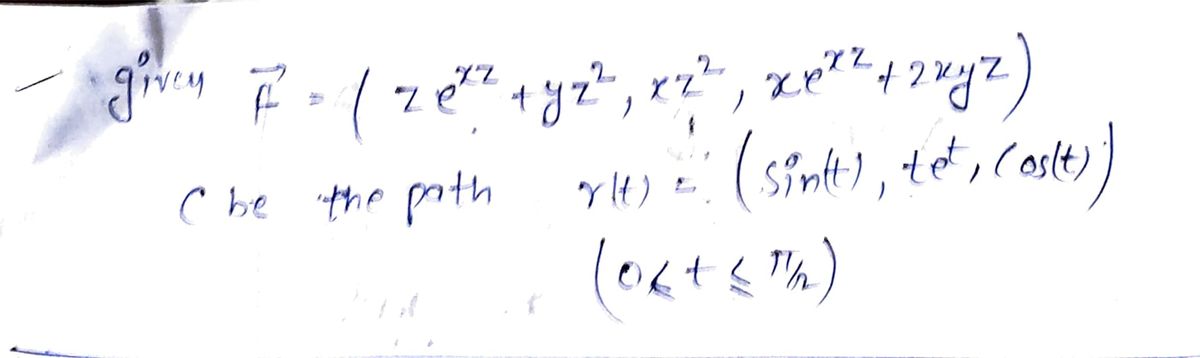 - given F⃗ = ( z e^{xz} + y z², x z², x e^{xz} + 2xyz )
C be the path r(t) = ( sin(t), t e^t, cos(t) )
( 0 ≤ t ≤ π/2 )